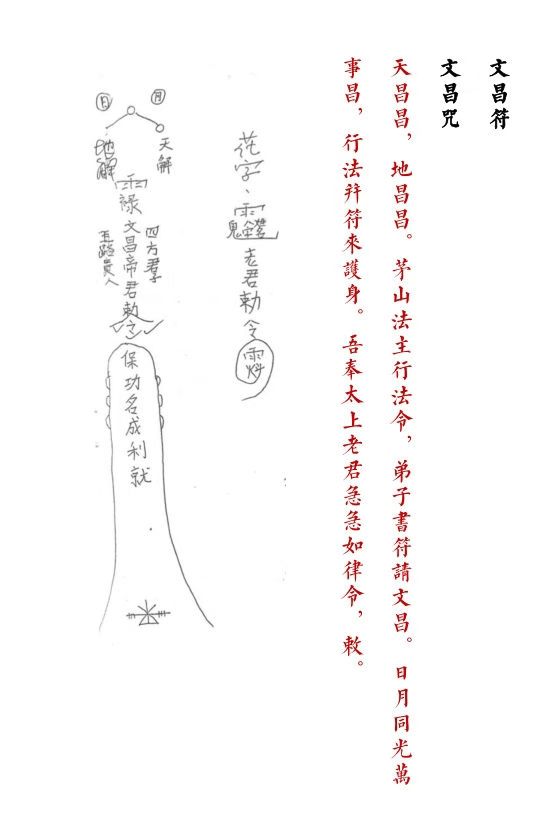 文昌符
文昌咒
天昌昌，地昌昌。茅山法主行法令，弟子書符請文昌。日月同光萬
事昌，行法拜符來護身。吾奉太上老君急急如律令，敕。
花字、
老君勅令
月
日
天解
地解
四方羣
祿文昌帝君勅令
五路貴人
保功名成利就